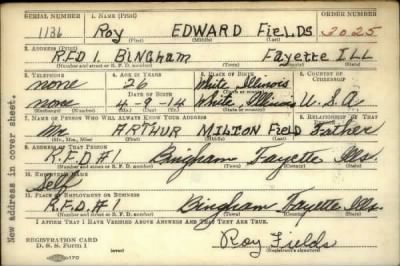 SERIAL NUMBER 1. NAME (Print) ORDER NUMBER
1136 Roy EDWARD Fields 2025
(First) (Middle) (Last)
2. ADDRESS (Print)
R.F.D 1 Bingham Fayette ILL
(Number and street or R. F. D. number) (Town) (County) (State)
3. TELEPHONE 4. AGE IN YEARS 5. PLACE OF BIRTH 6. COUNTRY OF CITIZENSHIP
none 26 White Illinois
DATE OF BIRTH
none 4-9-14 White Illinois U.S.A.
7. NAME OF PERSON WHO WILL ALWAYS KNOW YOUR ADDRESS 8. RELATIONSHIP OF THAT PERSON
Mr ARTHUR MILTON Field Father
(Mr., Mrs., Miss) (First) (Middle) (Last)
9. ADDRESS OF THAT PERSON
R.F.D #1 Bingham Fayette Ills.
(Number and street or R. F. D. number) (Town) (County) (State)
10. EMPLOYER'S NAME
Self
11. PLACE OF EMPLOYMENT OR BUSINESS
R.F.D. #1 Bingham Fayette Ills.
(Number and street or R. F. D. number) (Town) (County) (State)
I AFFIRM THAT I HAVE VERIFIED ABOVE ANSWERS AND THAT THEY ARE TRUE.
REGISTRATION CARD
D. S. S. Form 1
Roy Fields
New address in cover sheet.